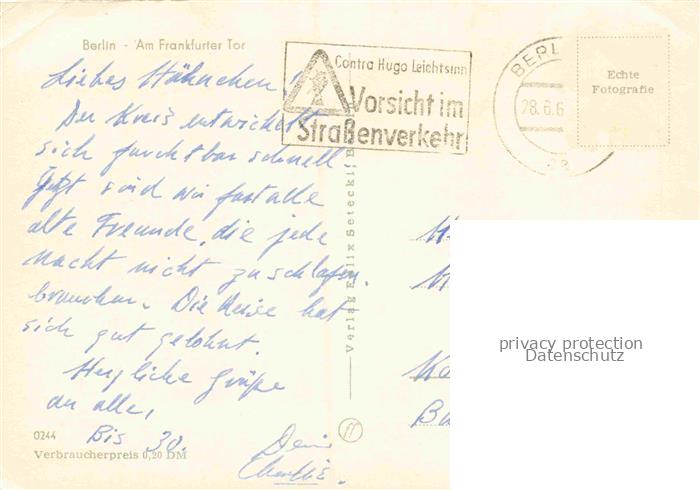 Berlin - Am Frankfurter Tor
Contra Hugo Leichtsinn
Vorsicht im
Straßenverkehr
BERL
28.6.6
Echte
Fotografie
Liebes Hühnchen!
Der Kreis entwickelt
sich furchtbar schnell.
Jetzt sind wir fast alle
alte Freunde, die jede
Nacht nicht zu schlafen
brauchen. Die Reise hat
sich gut gelohnt.
Herzliche Grüße
an alle,
Bis 30.
Dein
0244
Verbraucherpreis 0,20 DM
Verlag Felix Setecki, B
privacy protection
Datenschutz